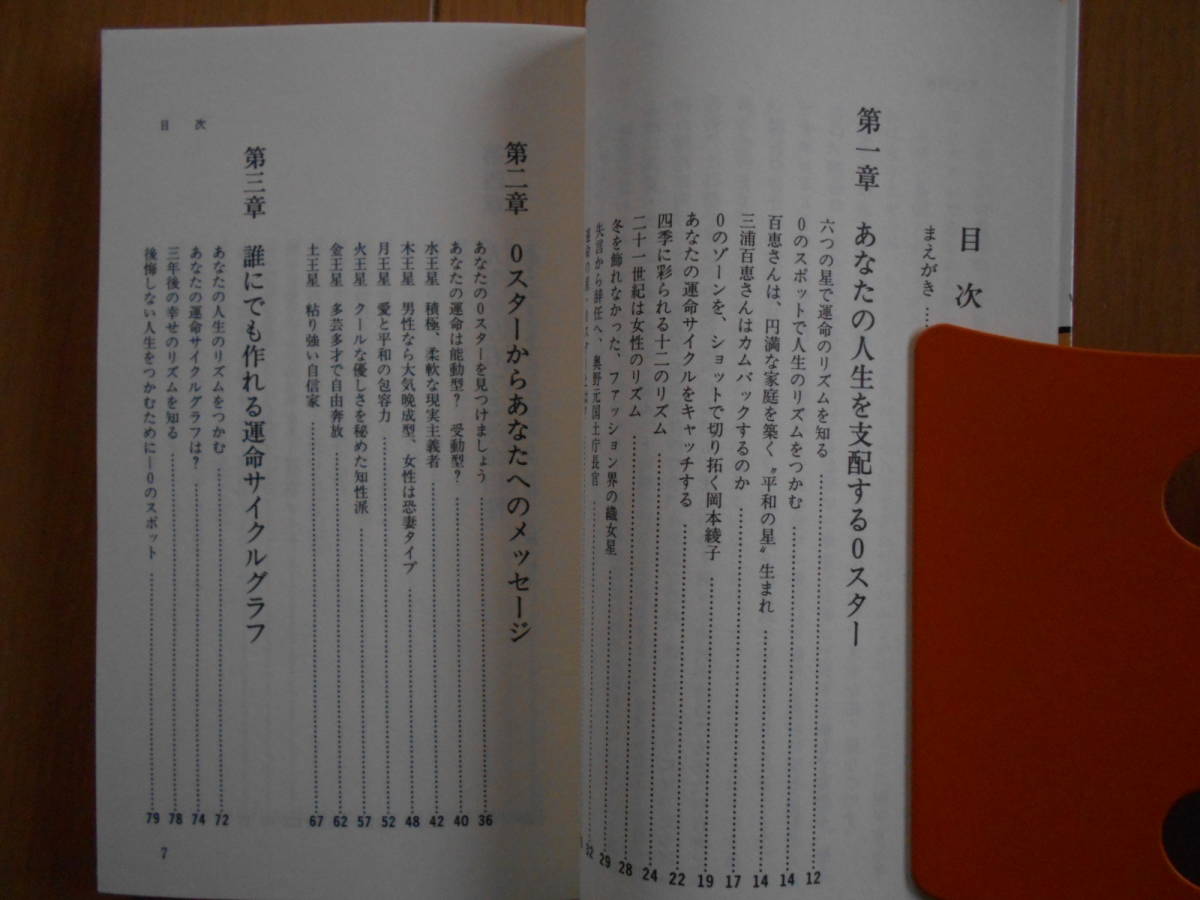 目次
まえがき……
第一章 あなたの人生を支配する0スター
六つの星で運命のリズムを知る……12
0のスポットで人生のリズムをつかむ……14
百恵さんは、円満な家庭を築く〝平和の星〟生まれ……14
三浦百恵さんはカムバックするのか……17
0のゾーンを、ショットで切り拓く岡本綾子……19
あなたの運命サイクルをキャッチする……22
四季に彩られる十二のリズム……24
二十一世紀は女性のリズム……28
冬を飾れなかった、ファッション界の織女星……29
失言から辞任へ、奥野元国土庁長官……32
第二章 0スターからあなたへのメッセージ
あなたの0スターを見つけましょう……36
あなたの運命は能動型? 受動型?……40
水王星 積極、柔軟な現実主義者……42
木王星 男性なら大気晩成型、女性は恐妻タイプ……48
月王星 愛と平和の包容力……52
火王星 クールな優しさを秘めた知性派……57
金王星 多芸多才で自由奔放……62
土王星 粘り強い自信家……67
第三章 誰にでも作れる運命サイクルグラフ
あなたの人生のリズムをつかむ……72
あなたの運命サイクルグラフは?……74
三年後の幸せのリズムを知る……78
後悔しない人生をつかむために—0のスポット……79
目次
7